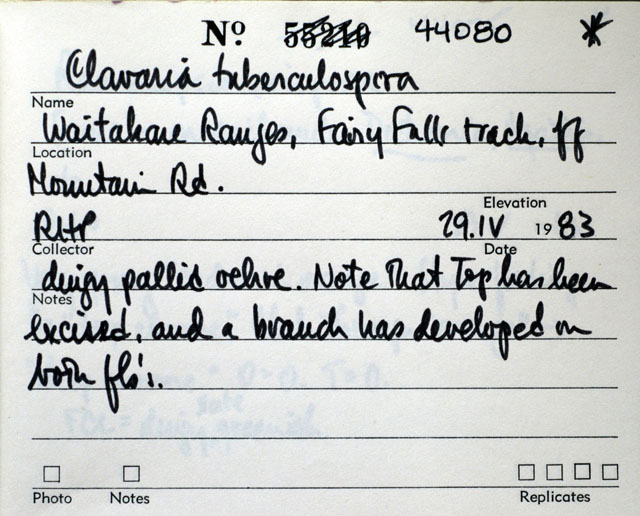 Nº 55210 44080 *
Clavaria tuberculospora
Name
Waitakare Ranges, Fairy Falls track, off
Location
Mountain Rd.
Elevation
RHP 29.IV 1983
Collector Date
dingy pallid ochre. Note that Top has been
Notes
excised, and a branch has developed on
both fb's.
Photo Notes Replicates